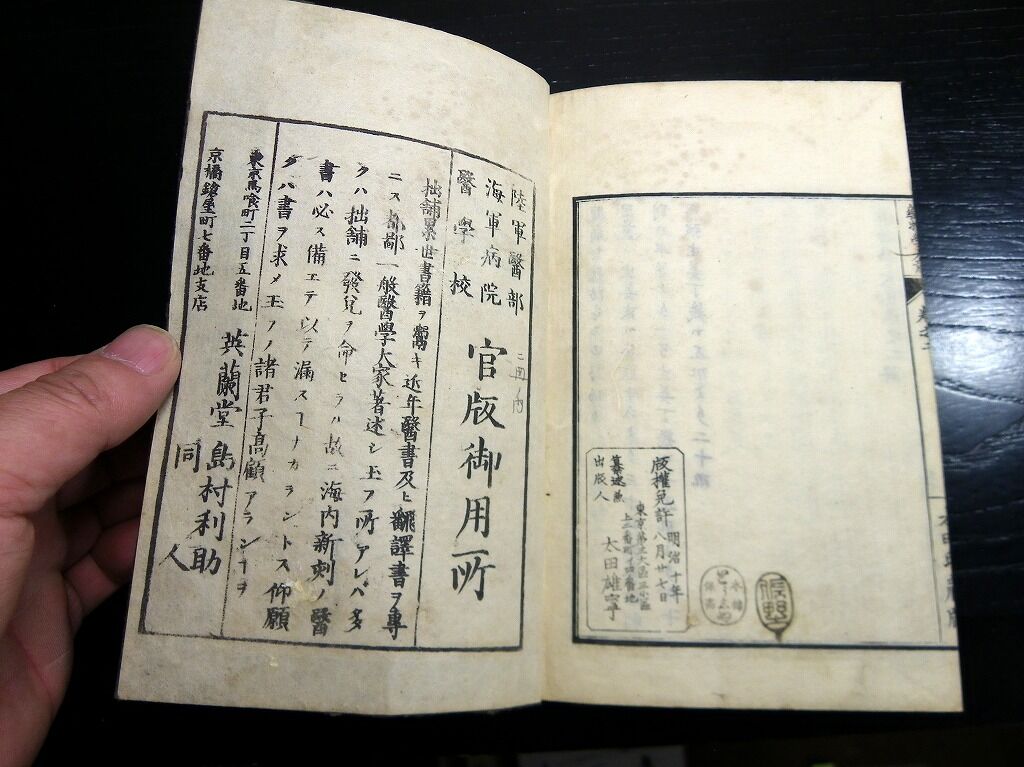 版權免許 明治十年八月廿七日
纂述兼出版人
東京第三大區三小區
上二番町十四番地
太田雄寧
陸軍醫部
海軍病院
醫學校
官版御用所
拙舗累世書籍ヲ鬻キ近年醫書及ヒ飜譯書ヲ專
ニス都鄙一般醫學大家著述シ玉フ所アレバ多
クハ拙舗ニ發兌ヲ命ヒラル故ニ海内新刻ノ醫
書ハ必ス備エテ以テ漏スヿナカラントス仰願
クハ書ヲ求メ玉フノ諸君子高顧アランヿヲ
東京馬喰町二丁目五番地
英蘭堂 島村利助
京橋鎗屋町七番地支店
同人